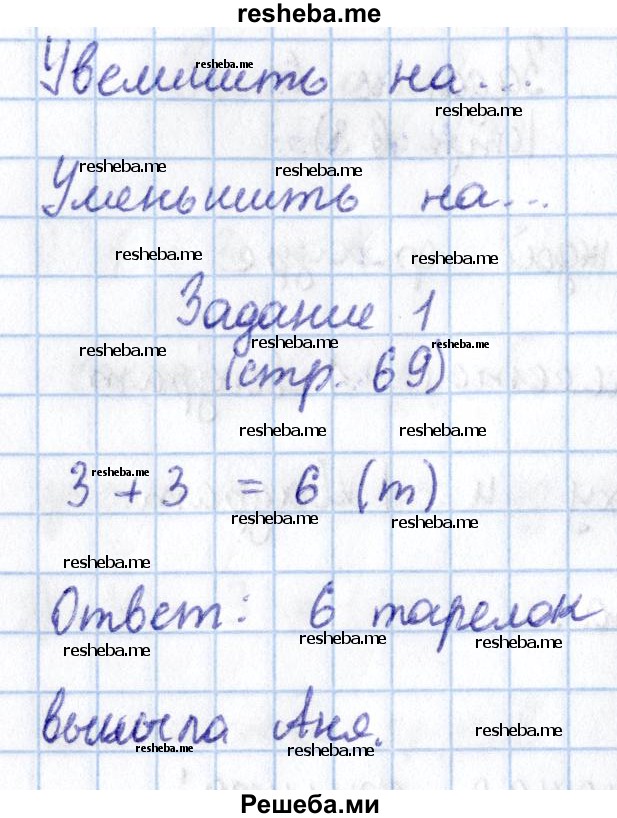 resheba.me
Увеличить на...
resheba.me
resheba.me
resheba.me resheba.me
Уменьшить на...
resheba.me resheba.me
Задание 1
resheba.me resheba.me
(стр. 69)
resheba.me resheba.me
resheba.me
3 + 3 = 6 (т)
resheba.me resheba.me
resheba.me
Ответ: 6 тарелок
resheba.me resheba.me resheba.me
вымыла Аня.
resheba.me resheba.me resheba.me
Решеба.ми